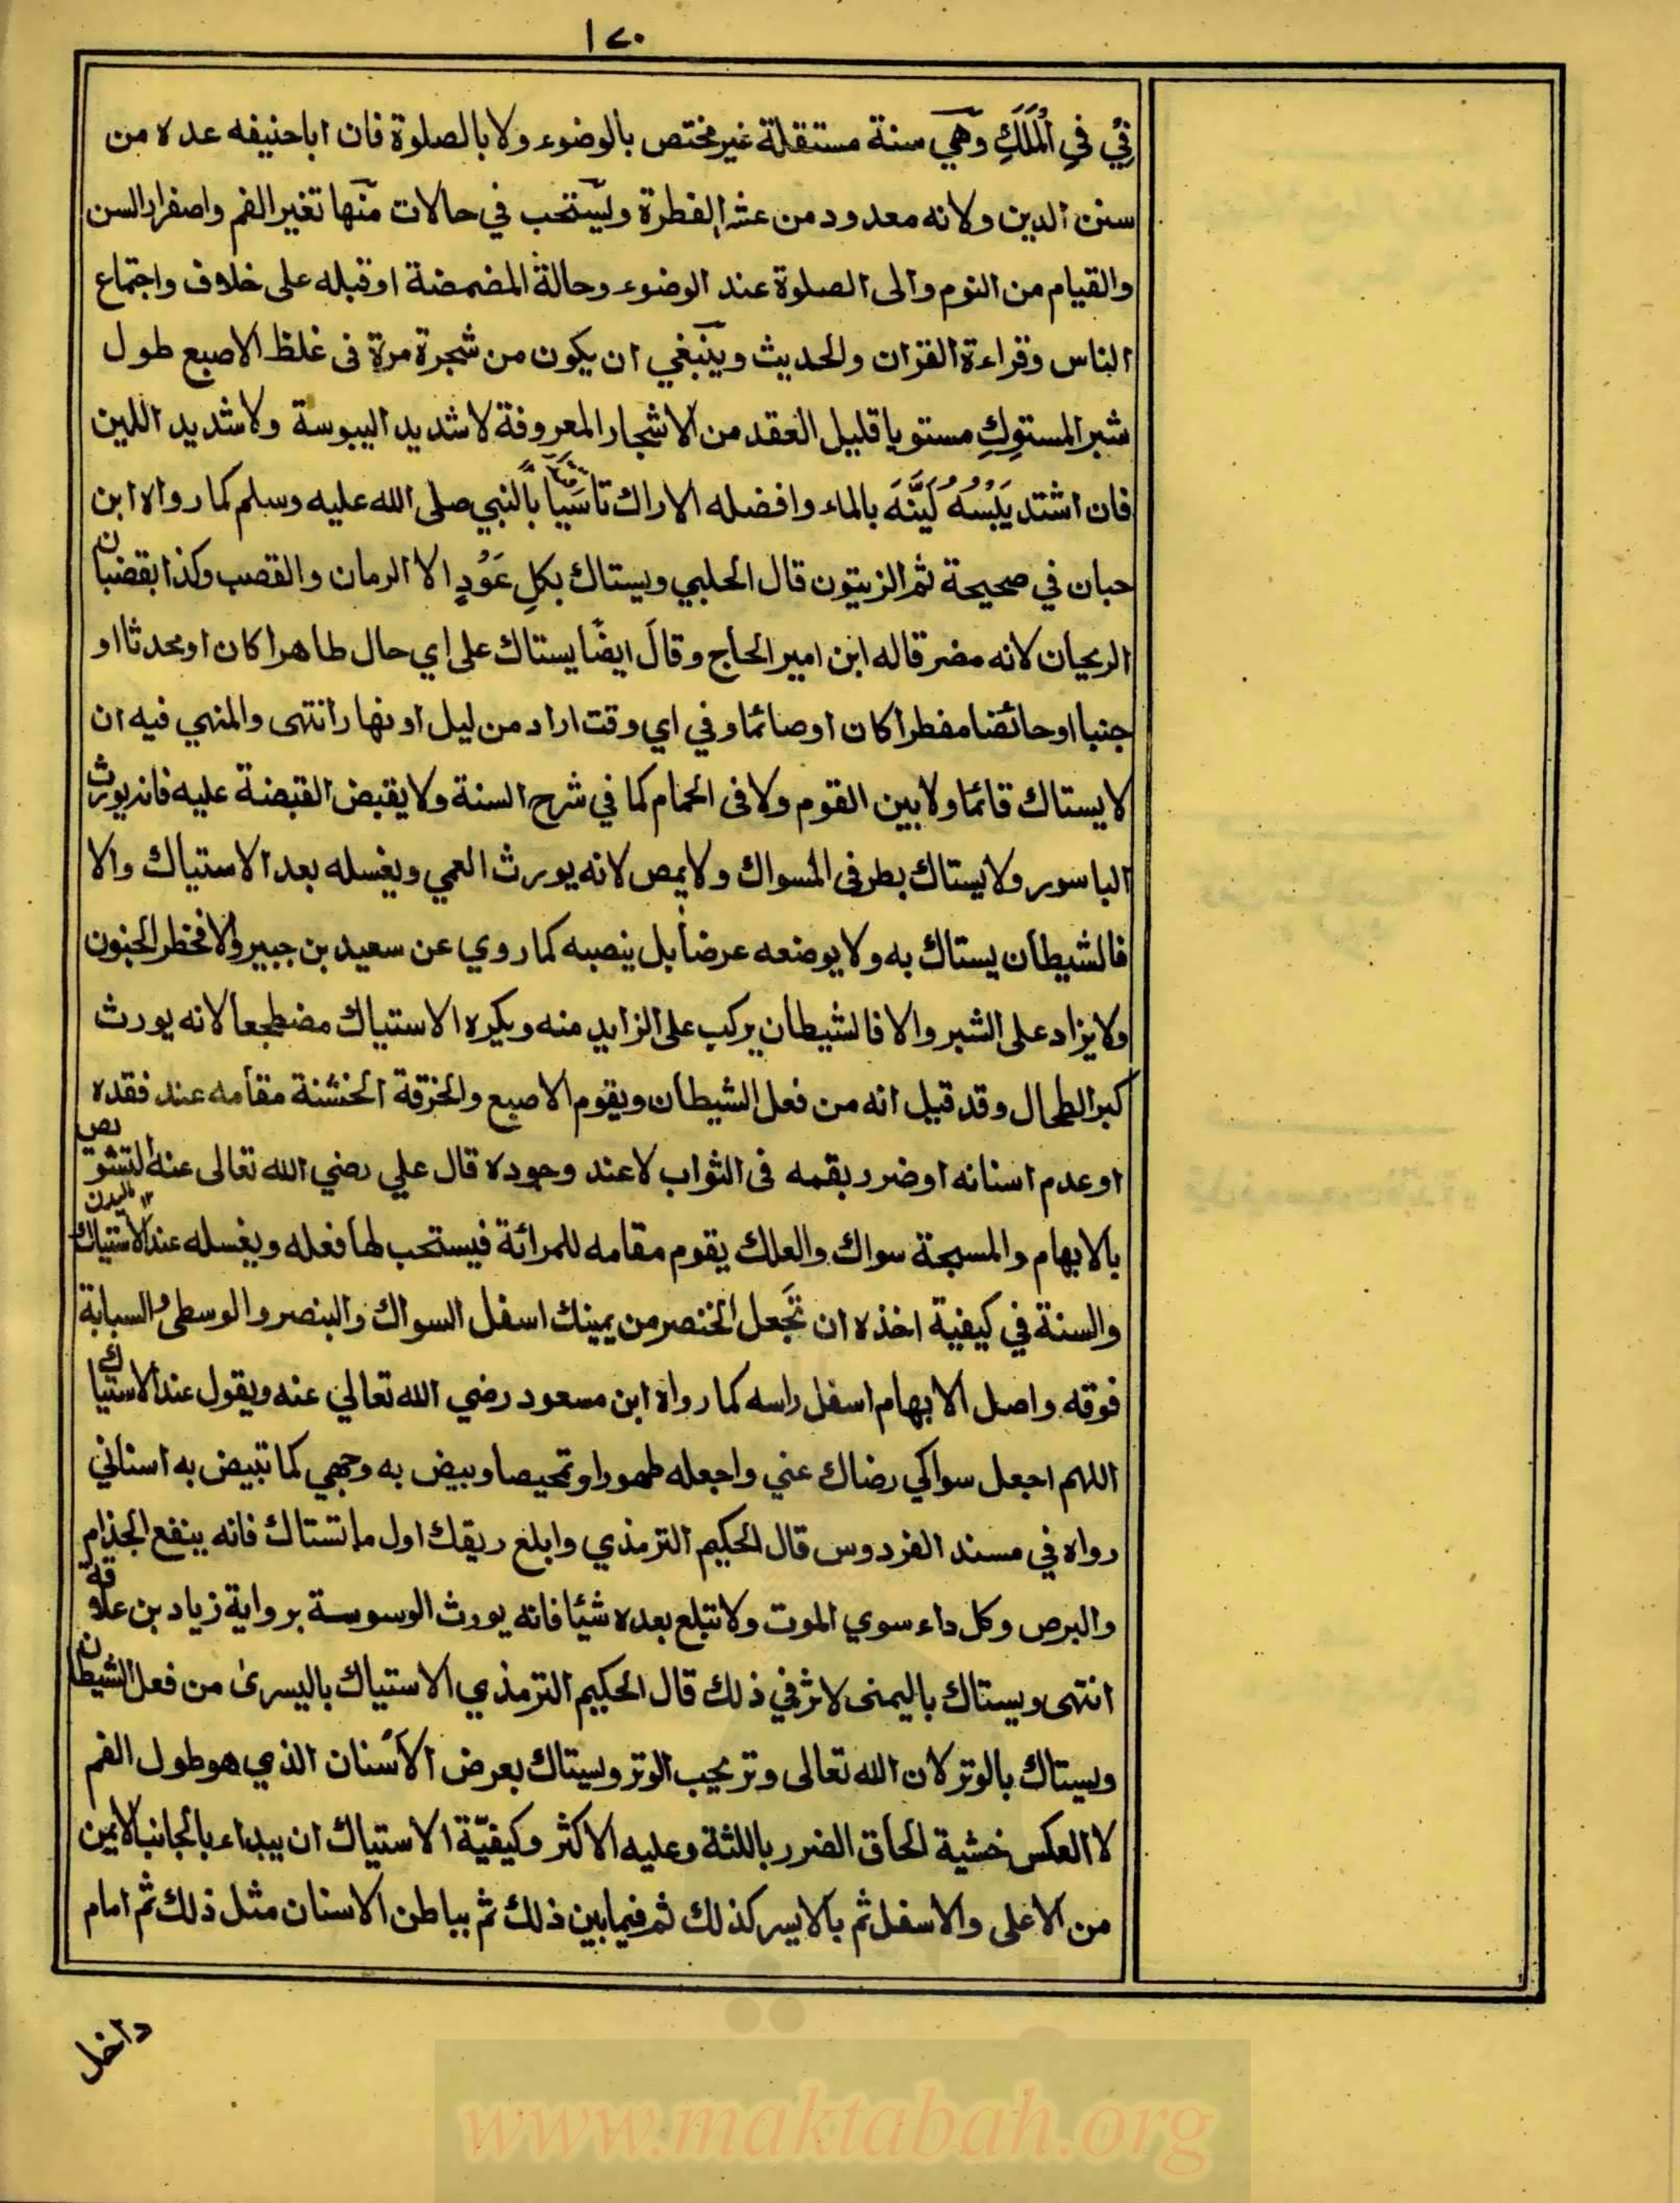 ١٧٠
في في الملك وهي سنة مستقلة غير مختص بالوضوء ولا بالصلوة فان اباحنيفه عده من
سنن الدين ولانه معدود من عشر الفطرة ويستحب في حالات منها تغير الفم واصفرار السن
والقيام من النوم والى الصلوة عند الوضوء وحالة المضمضة او قبله على خلاف واجتماع
الناس وقراءة القران والحديث وينبغي ان يكون من شجرة مرة فى غلظ الاصبع طول
شبر المستوك مستويا قليل العقد من الاشجار المعروفة لا شديد اليبوسة ولا شديد اللين
فان اشتد يَبْسُهُ لَيَّنَهَ بالماء وافضله الاراك تاسيا بالنبي صلى الله عليه وسلم كما رواه ابن
حبان في صحيحة ثم الزيتون قال الحلبي ويستاك بكل عَوْدٍ الا الرمان والقصب وكذا بقضبان
الريحان لانه مضر قاله ابن امير الحاج وقال ايضًا يستاك على اي حال طاهرا كان او محدثا او
جنبا او حائضا مفطرا كان او صائما وفي اي وقت اراد من ليل او نهار انتهى والمنهي فيه ان
لا يستاك قائما ولا بين القوم ولا فى الحمام كما في شرح السنة ولا يقبض القبضة عليه فانه يورث
الباسور ولا يستاك بطرفى المسواك ولا يمص لانه يورث العمي ويغسله بعد الاستياك والا
فالشيطان يستاك به ولا يوضعه عرضا بل ينصبه كما روي عن سعيد بن جبير والا فخطر الجنون
ولا يزاد على الشبر والا فالشيطان يركب على الزايد منه ويكره الاستياك مضطجعا لانه يورث
كبر الطحال وقد قيل انه من فعل الشيطان ويقوم الاصبع والخرقة الخشنة مقامه عند فقده
او عدم اسنانه او ضرر بقمه فى الثواب لا عند وجوده قال علي رضي الله تعالى عنه التشويص
بالابهام والمسبحة سواك والعلك يقوم مقامه للمرائة فيستحب لها فعله ويغسله عند الاستياك
والسنة في كيفية اخذه ان تجعل الخنصر من يمينك اسفل السواك والبنصر والوسطى والسبابة
فوقه واصل الابهام اسفل راسه كما رواه ابن مسعود رضي الله تعالي عنه ويقول عند الاستياك
اللهم اجعل سواكي رضاك عني واجعله طهورا وتمحيصا وبيض به وجهي كما تبيض به اسناني
رواه في مسند الفردوس قال الحكيم الترمذي وابلع ريقك اول ما تستاك فانه ينفع الجذام
والبرص وكل داء سوي الموت ولا تبلع بعده شيئا فانه يورث الوسوسة برواية زياد بن علاقة
انتهى ويستاك باليمنى لاثر في ذلك قال الحكيم الترمذي الاستياك باليسرى من فعل الشيطان
ويستاك بالوتر لان الله تعالى وتر يحب الوتر ويستاك بعرض الاسنان الذي هو طول الفم
لا العكس خشية الحاق الضرر باللثة وعليه الاكثر وكيفيّة الاستياك ان يبداء بالجانب الايمن
من الاعلى والاسفل ثم بالايسر كذلك ثم فيما بين ذلك ثم بباطن الاسنان مثل ذلك ثم امام
داخل
www.maktabah.org